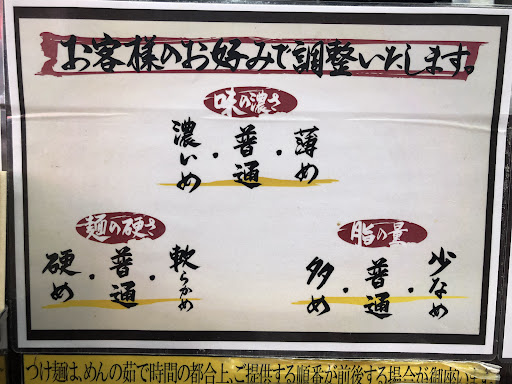 お客様のお好みで調整いたします。
味の濃さ
濃いめ・普通・薄め
麺の硬さ
硬め・普通・軟らかめ
脂の量
多め・普通・少なめ
つけ麺は、めんの茹で時間の都合上、ご提供する順番が前後する場合が御座いま